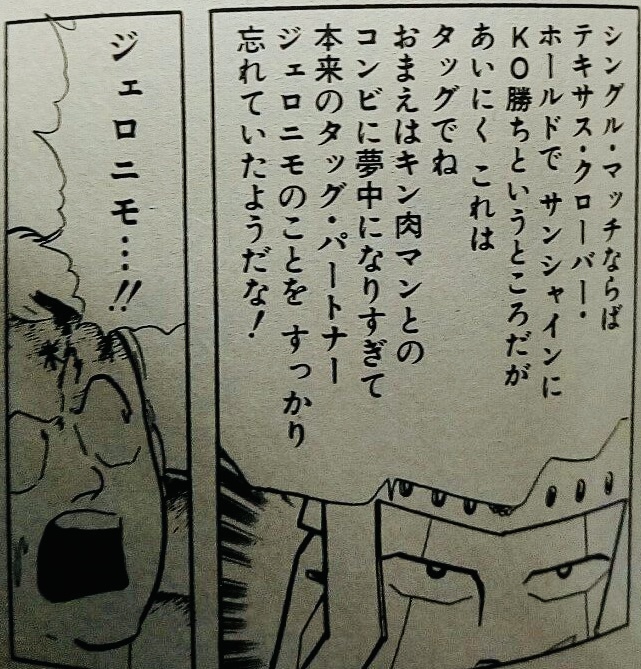 シングル・マッチならば
テキサス・クローバー・
ホールドで サンシャインに
KO勝ちというところだが
あいにく これは
タッグでね
おまえはキン肉マンとの
コンビに夢中になりすぎて
本来のタッグ・パートナー
ジェロニモのことを すっかり
忘れていたようだな!
ジェロニモ…!!